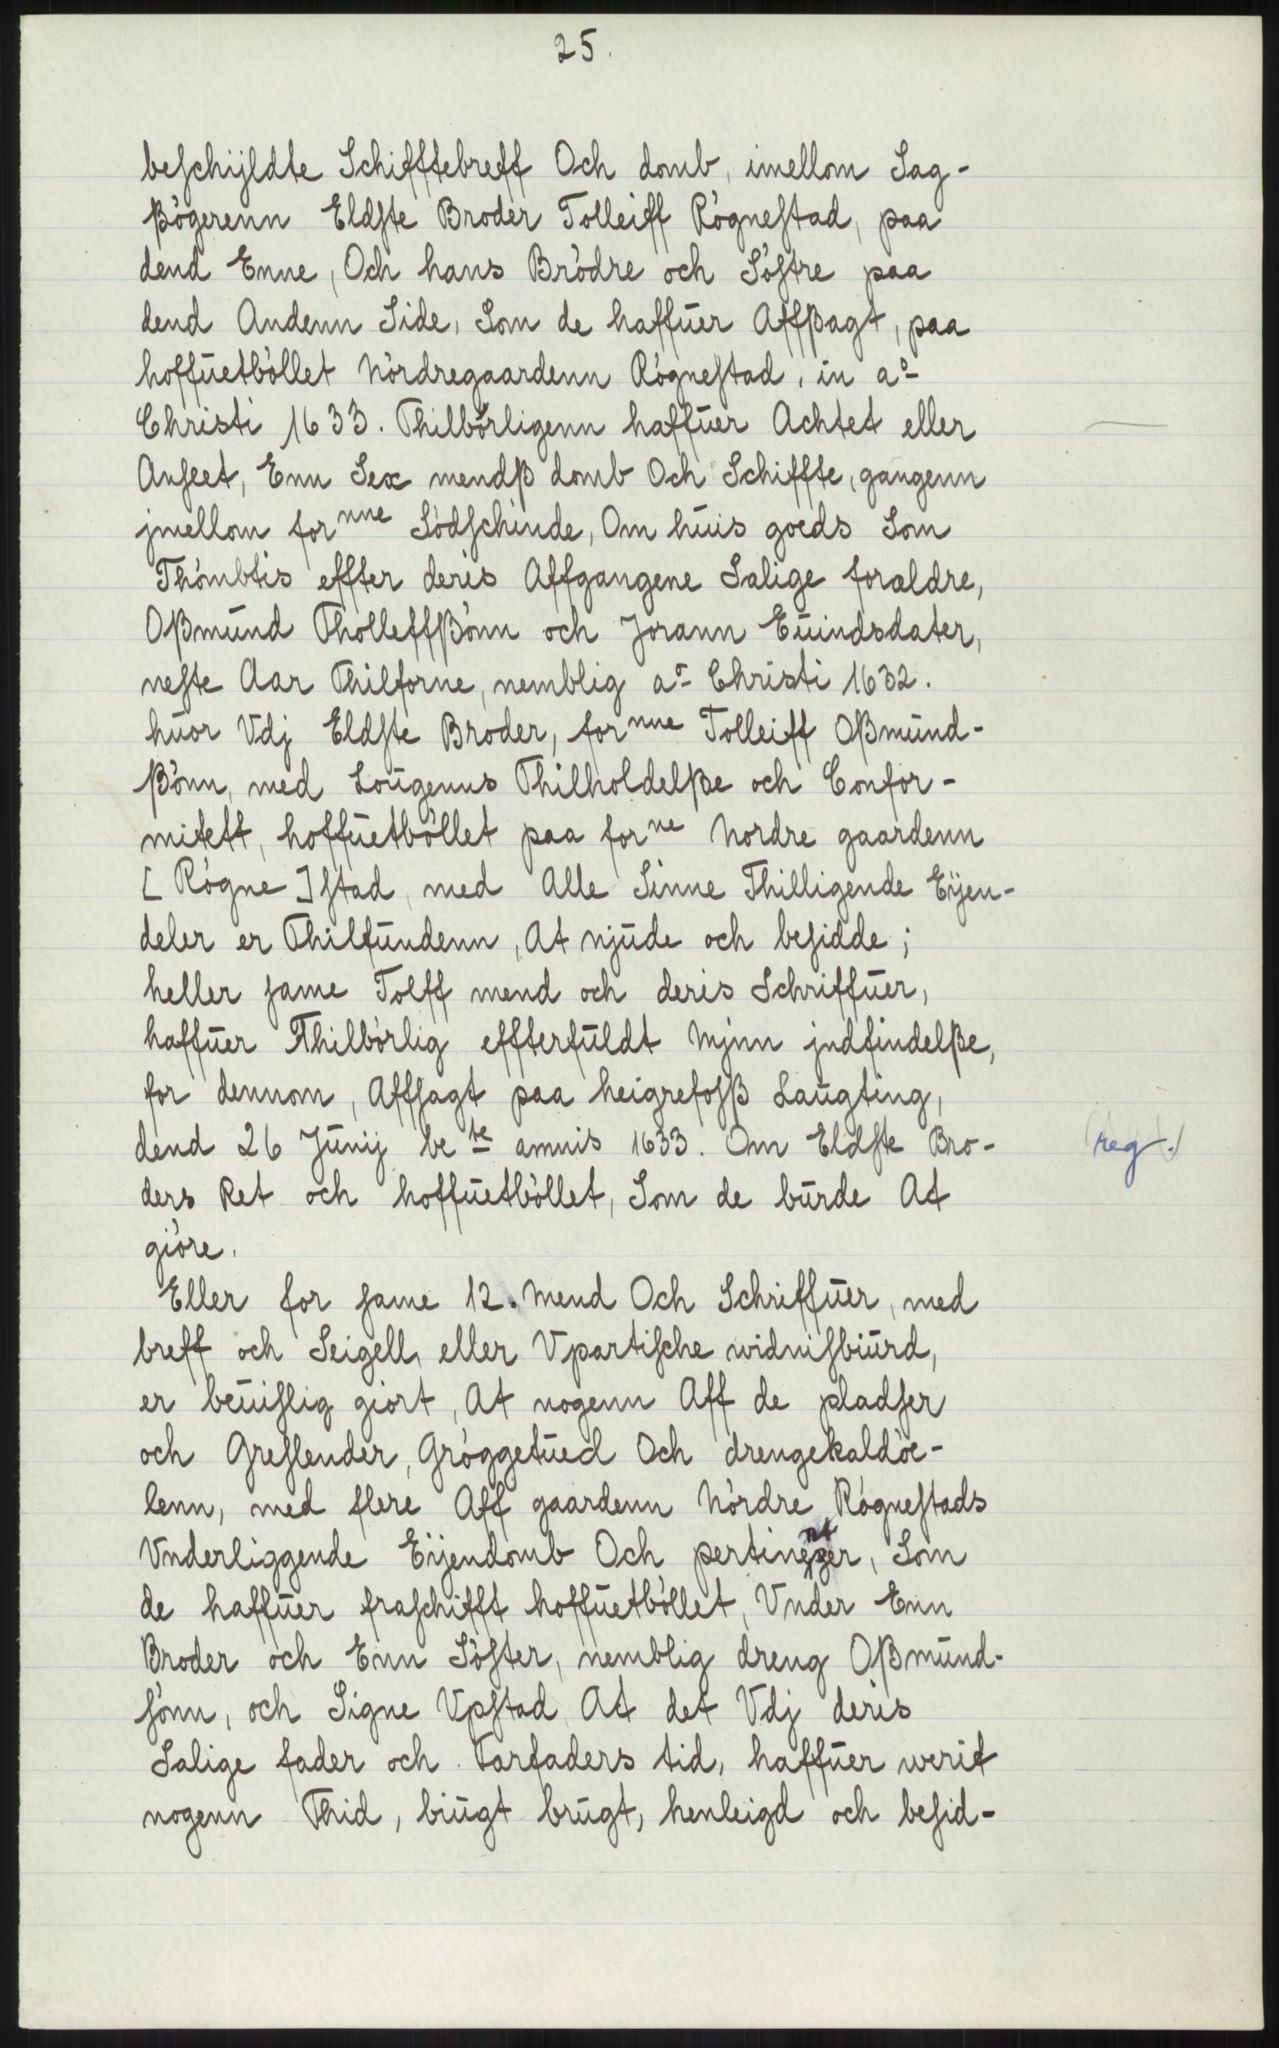 25.
beschÿldte Schifftebreff Och domb, imellom Sag-
ßógerenn Eldste Broder Tolleiff Rógnestad, paa
dend Enne, Och hans Bródre och Sóstre paa
dend Andenn Side, Som de haffuer Affßagt, paa
hoffuetbóllet Nórdregaardenn Rógnestad, in aº
Christi 1633. Thilbórligenn haffuer Achtet eller
Anseet, Enn Sex mendß domb Och Schiffte, gangenn
jmellom for nne Sódschinde, Om huis goeds Som
Thómbtis effter deris Affgangene Salige forældre,
Oßmund Tholleffßónn och Jorann Euindsdater,
neste Aar Thilforne, nemblig aº Christi 1632.
huor Vdj Eldste Broder, for nne Tolleiff Oßmund-
ßónn, med Lougenns Thilholdelße och Confor-
mitett, hoffuetbóllet paa for ne Nordre gaardenn
[Rógne]stad, med Alle Sinne Thilligende Eÿen-
deler er Thilfundenn, At njude och besidde;
heller same Tolff mend och deris Schriffuer,
haffuer Thilbórlig effterfuldt Mjnn jndfindelße,
for dennom, Affsagt paa heigrefosß Laugting,
dend 26 Junij be te annis 1633. Om Eldste Bro-
ders Ret och hoffuetbóllet, Som de burde At
gióre.
reg.
Eller for same 12. Mend Och Schriffuer, med
breff och Seigell, eller Vpartische widnisbiurd,
er beuislig giort, At nogenn Aff de pladser
och Greslender, Gróggetued Och drengekaldóc-
lenn, med flere Aff gaardenn Nórdre Rógnestads
Vnderliggende Eÿendomb Och pertinentzer, Som
de haffuer fraschifft hoffuetbóllet, Vnder Enn
Broder och Enn Sóster, nemblig dreng Oßmund-
sónn, och Signe Vpstad, At det Vdj deris
Salige fader och Farfaders tid, haffuer werit
nogenn Thid, biugt brugt, henleigd och besid-